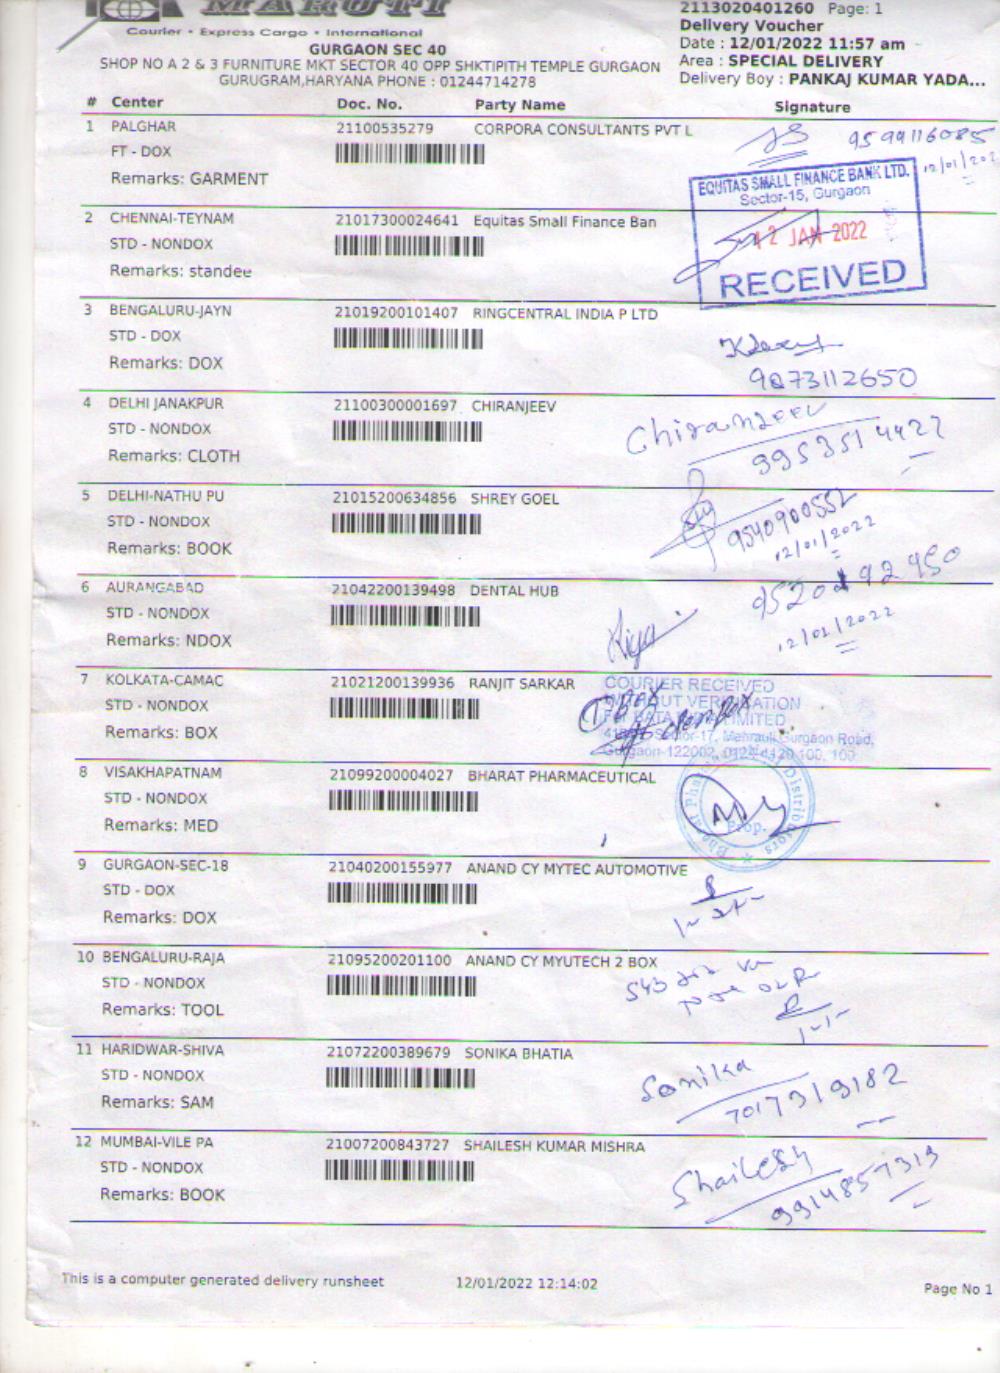 MARUTI
Courier • Express Cargo • International
2113020401260 Page: 1
Delivery Voucher
Date : 12/01/2022 11:57 am
Area : SPECIAL DELIVERY
Delivery Boy : PANKAJ KUMAR YADA...
GURGAON SEC 40
SHOP NO A 2 & 3 FURNITURE MKT SECTOR 40 OPP SHKTIPITH TEMPLE GURGAON
GURUGRAM,HARYANA PHONE : 01244714278
# Center Doc. No. Party Name Signature
1 PALGHAR 21100535279 CORPORA CONSULTANTS PVT L
FT - DOX 9599116085
Remarks: GARMENT 12/01/202
EQUITAS SMALL FINANCE BANK LTD.
Sector-15, Gurgaon
12 JAN 2022
RECEIVED
2 CHENNAI-TEYNAM 21017300024641 Equitas Small Finance Ban
STD - NONDOX
Remarks: standee
3 BENGALURU-JAYN 21019200101407 RINGCENTRAL INDIA P LTD
STD - DOX
Remarks: DOX 9873112650
4 DELHI JANAKPUR 21100300001697 CHIRANJEEV
STD - NONDOX Chiranjeev
Remarks: CLOTH 9953514422
5 DELHI-NATHU PU 21015200634856 SHREY GOEL
STD - NONDOX 9540900552
Remarks: BOOK 12/01/2022
6 AURANGABAD 21042200139498 DENTAL HUB
STD - NONDOX
Remarks: NDOX 12/01/2022
7 KOLKATA-CAMAC 21021200139936 RANJIT SARKAR
STD - NONDOX
Remarks: BOX
COURIER RECEIVED
WITHOUT VERIFICATION
For BATA INDIA LIMITED
Sector-17, Mehrauli Gurgaon Road,
Gurgaon-122002,
8 VISAKHAPATNAM 21099200004027 BHARAT PHARMACEUTICAL
STD - NONDOX
Remarks: MED
Distributors
Prop.
9 GURGAON-SEC-18 21040200155977 ANAND CY MYTEC AUTOMOTIVE
STD - DOX
Remarks: DOX
10 BENGALURU-RAJA 21095200201100 ANAND CY MYUTECH 2 BOX
STD - NONDOX
Remarks: TOOL
11 HARIDWAR-SHIVA 21072200389679 SONIKA BHATIA
STD - NONDOX Sonika
Remarks: SAM 7017319182
12 MUMBAI-VILE PA 21007200843727 SHAILESH KUMAR MISHRA
STD - NONDOX Shailesh
Remarks: BOOK 9914857319
This is a computer generated delivery runsheet 12/01/2022 12:14:02 Page No 1